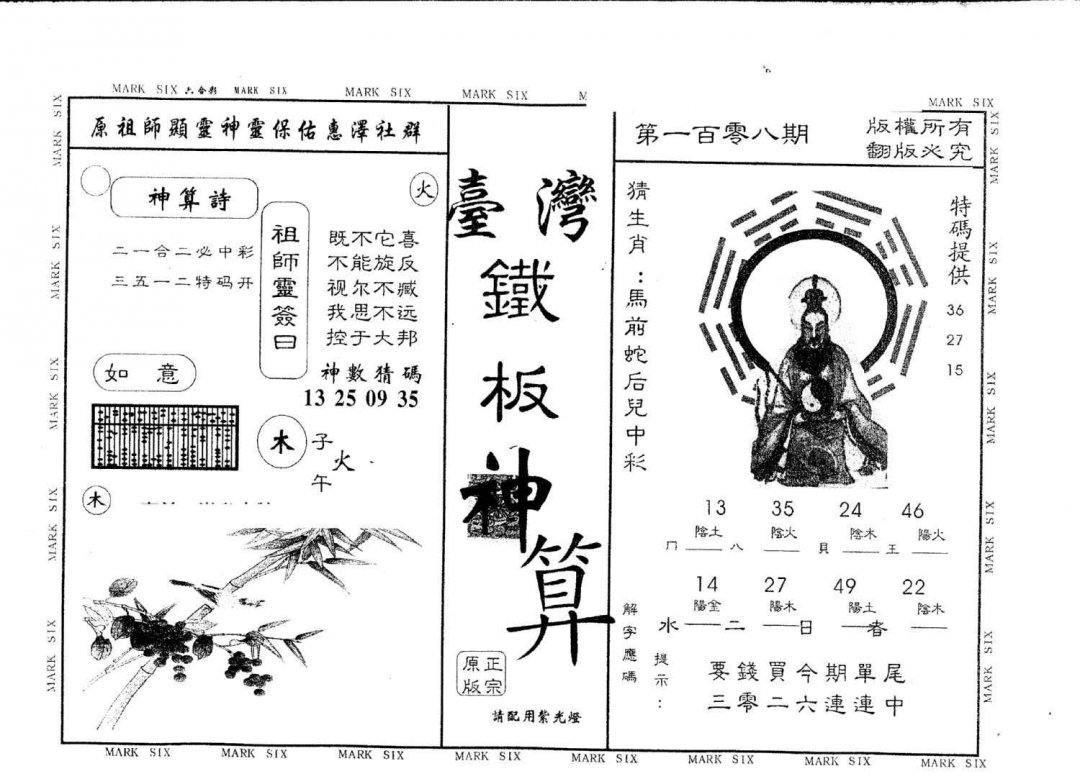 MARK SIX 六合彩 MARK SIX MARK SIX MARK SIX M
MARK SIX
原祖師顯靈神靈保佑惠澤社群
神算詩
火
二一合二必中彩
三五一二特码开
祖師靈簽曰
既不它喜
不能旋反
视尔不臧
我思不远
控于大邦
神數猜碼
13 25 09 35
如意
木
子
火
午
木
臺灣
鐵
板
神
算
正宗
原版
請配用紫光燈
第一百零八期
版權所有
翻版必究
猜生肖：馬前蛇后兒中彩
特碼提供
36
27
15
13 35 24 46
陰土 陰火 陰木 陽火
八 貝 王
14 27 49 22
陽金 陽木 陽土 陰木
水 二 日 春
解字應碼
提示：
要錢買今期單尾
三零二六連連中
MARK SIX
MARK SIX
MARK SIX
MARK SIX
MARK SIX
MARK SIX
MARK SIX
MARK SIX
MARK SIX
MARK SIX
MARK SIX
MARK SIX MARK SIX MARK SIX MARK SIX MARK SIX MARK SIX MARK SIX MARK SIX